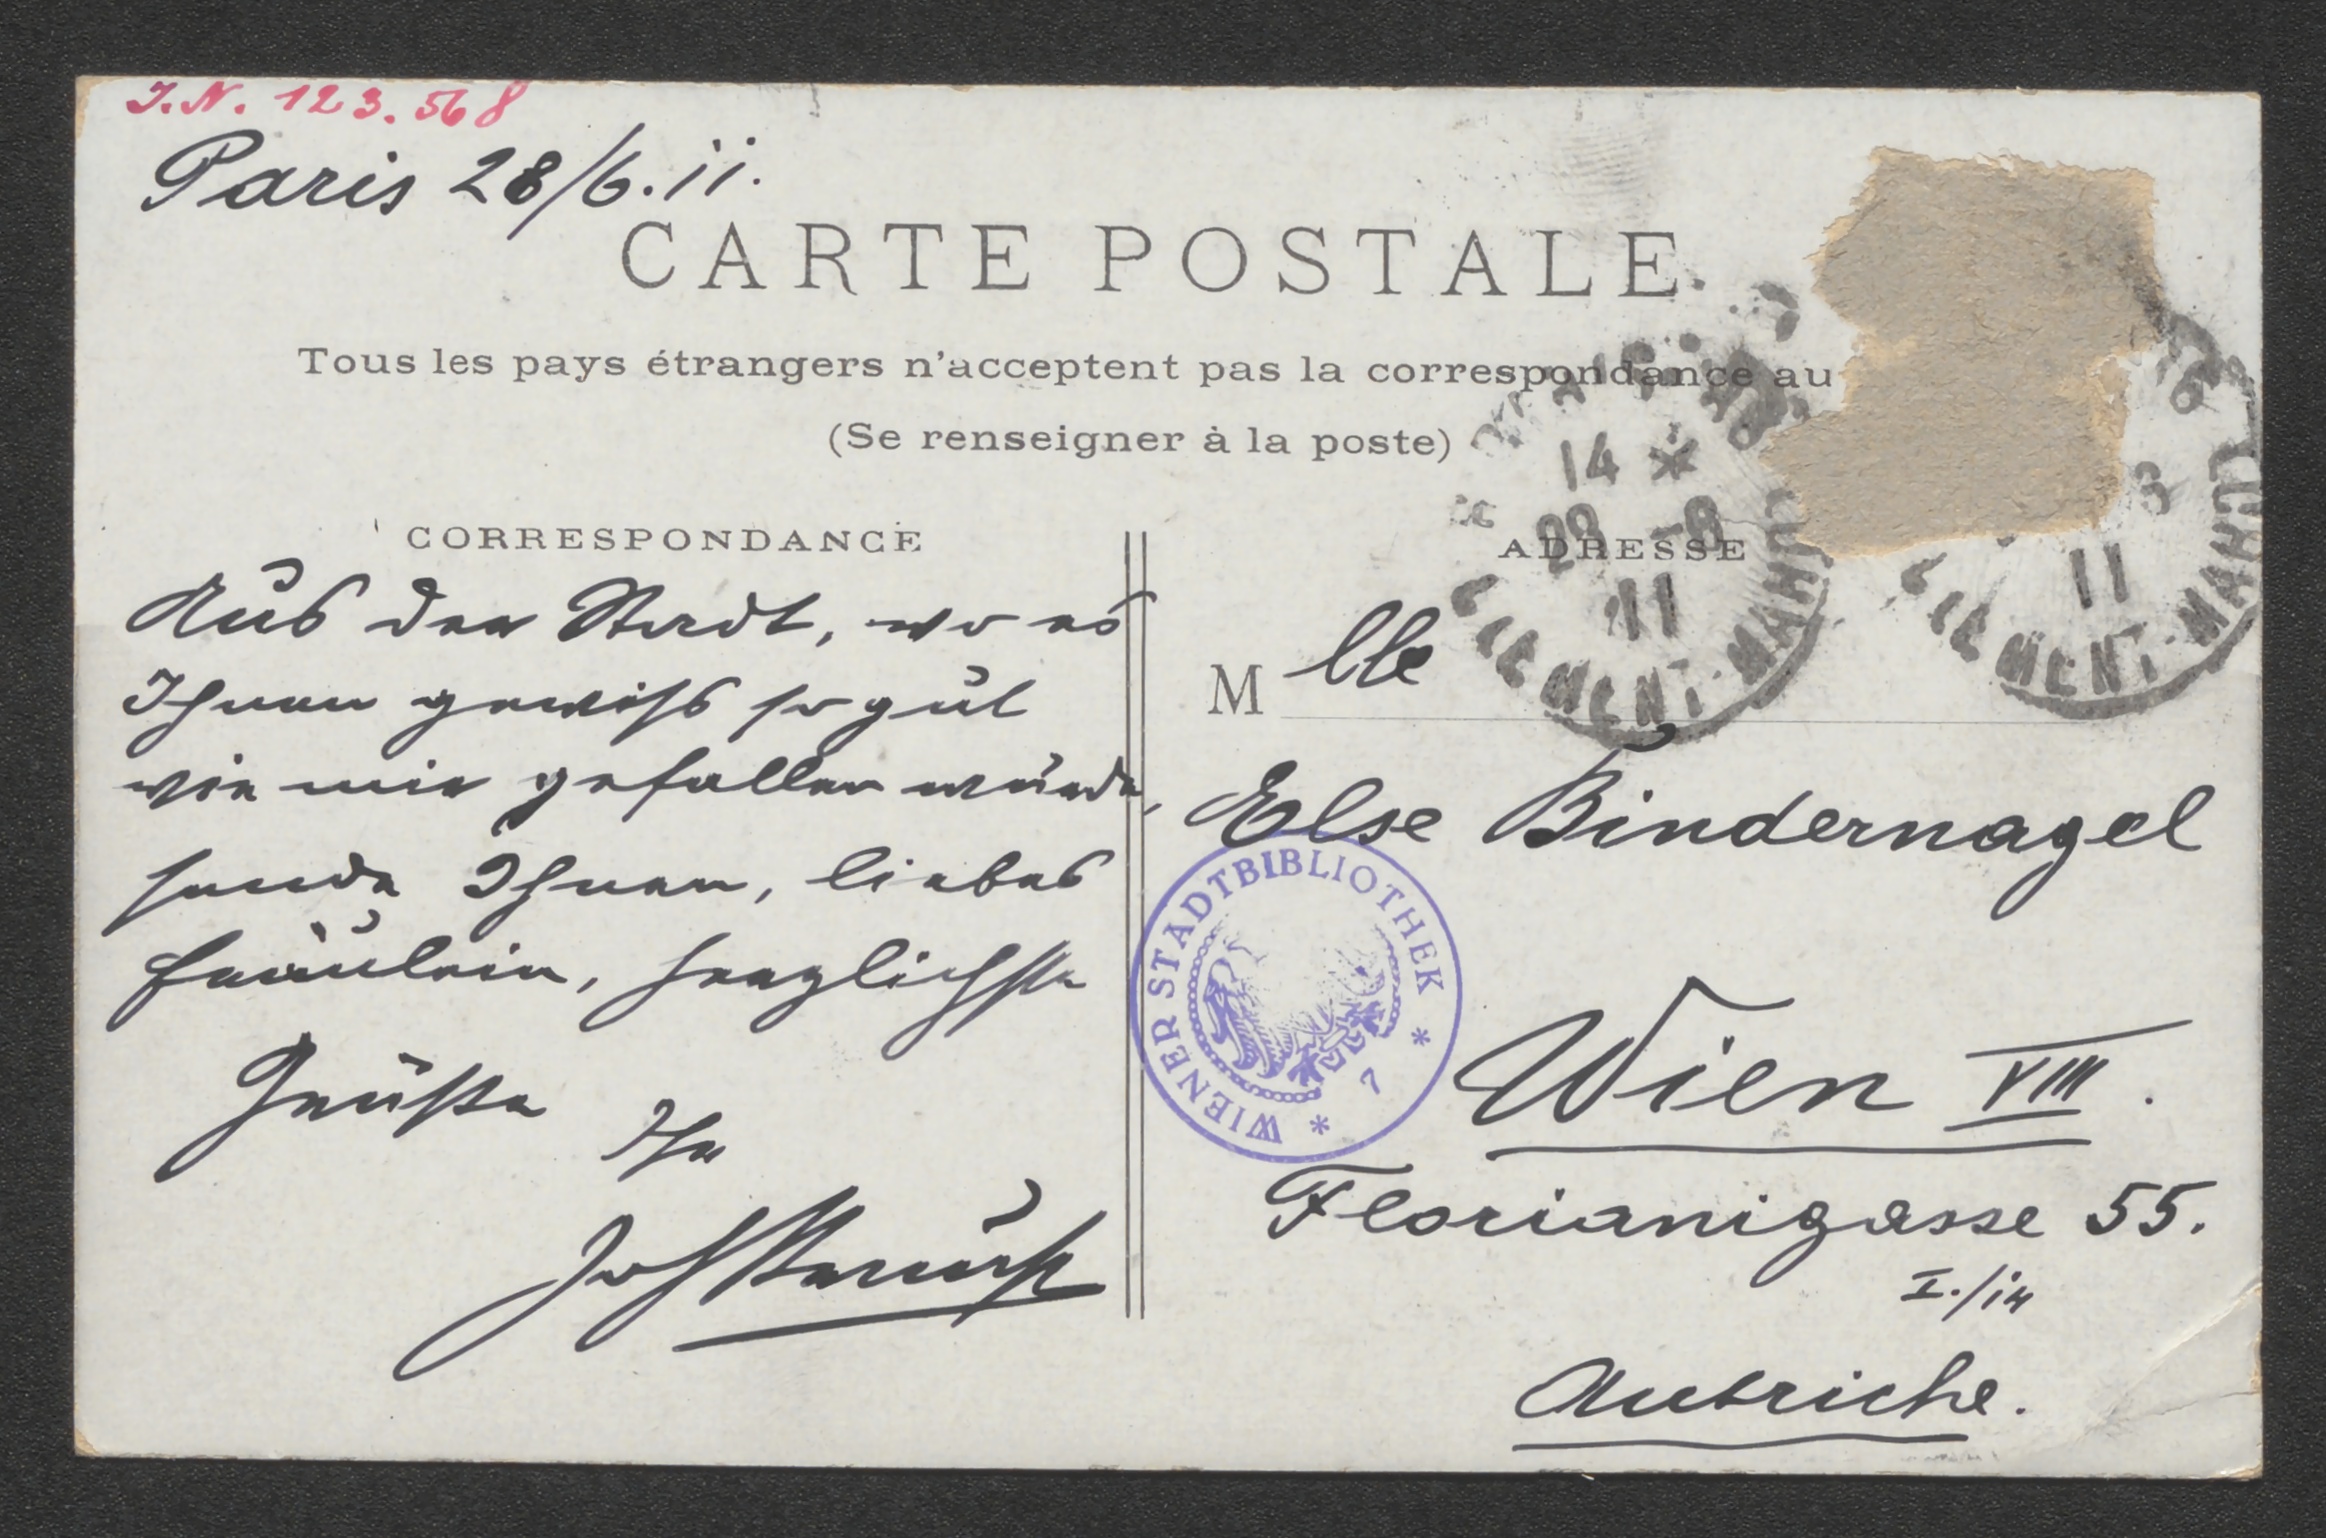 I.N. 123.568
Paris 28/6.11.
CARTE POSTALE
Tous les pays étrangers n'acceptent pas la correspondance au
(Se renseigner à la poste)
CORRESPONDANCE
Aus der Stadt, wo es
Ihnen gewiß so gut
wie mir gefallen würde,
sende Ihnen, liebes
Fräulein, herzlichste
Grüße
Ihr
ADRESSE
Mlle
Else Bindernagel
Wien VIII.
Florianigasse 55.
I./14
Autriche.
14 *
28 -6
11
CLEMENT-MAROT
11
CLEMENT-MAROT
WIENER STADTBIBLIOTHEK * 7 *